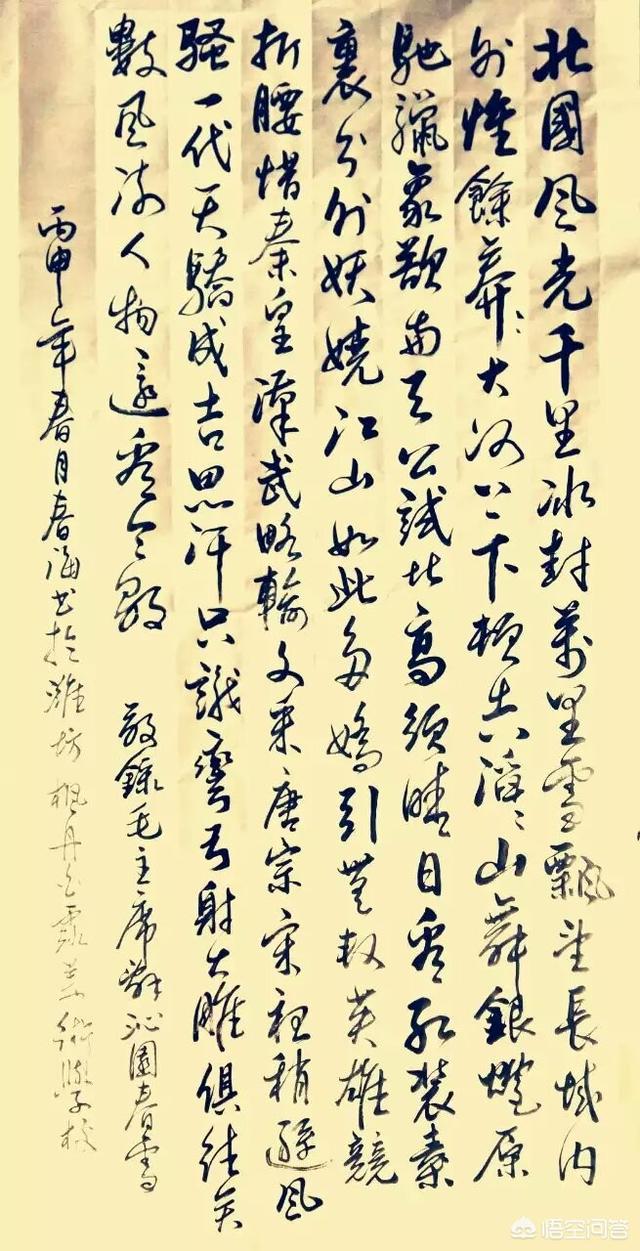 北國风光千里冰封萬里雪飄望長城内
外惟餘莽〻大河上下頓失滔〻山舞銀蛇原
馳蠟象欲与天公試比高須晴日看红装素
裹分外妖嬈江山如此多嬌引無数英雄競
折腰惜秦皇漢武略輸文采唐宗宋祖稍遜风
騷一代天驕成吉思汗只識彎弓射大雕俱往矣
數风流人物還看今朝
敬錄毛主席辭沁園春雪
丙申年春月春海书於濰坊楓丹白露美術學校
悟空问答